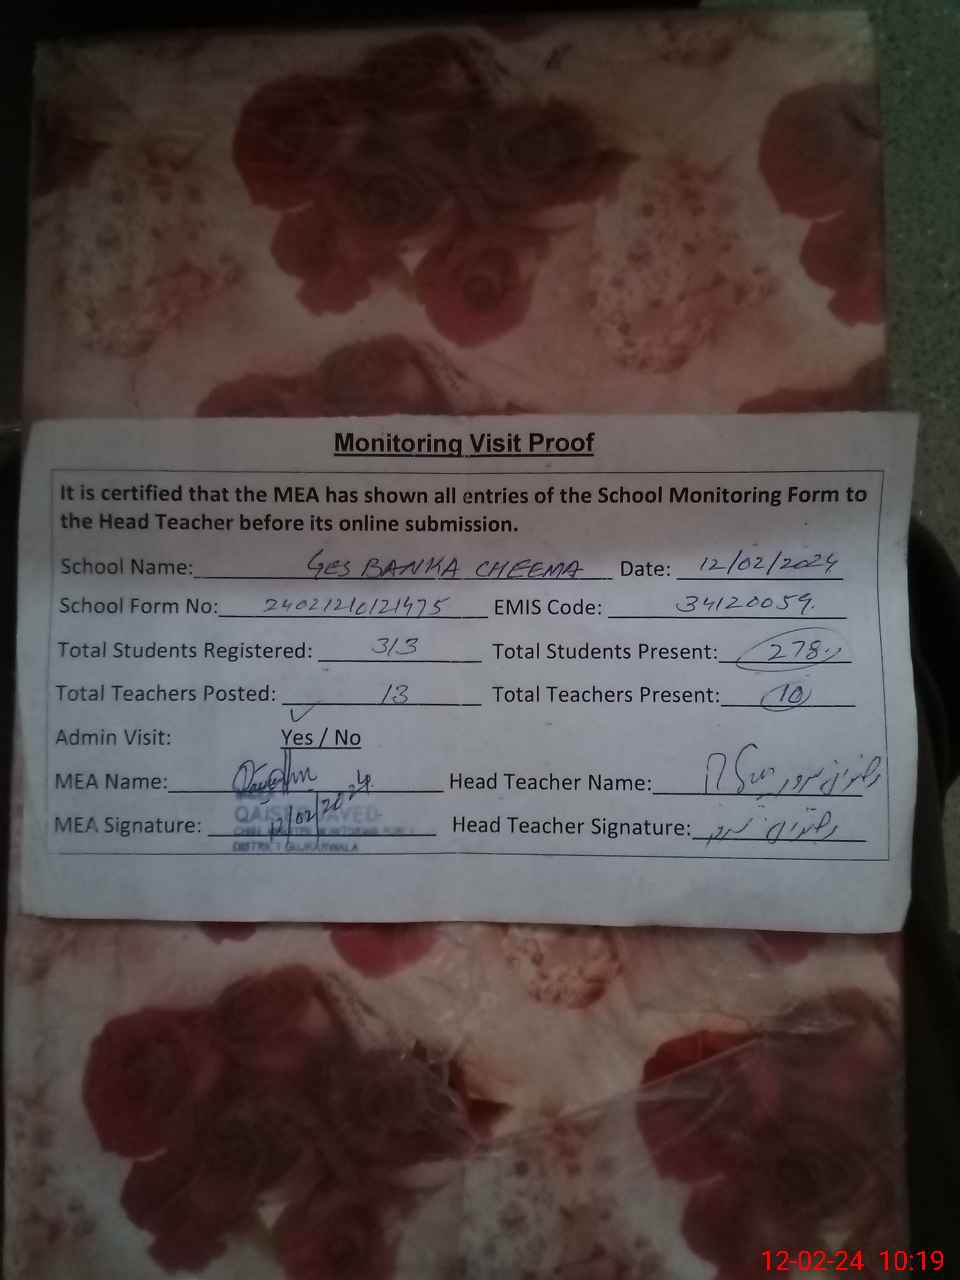 Monitoring Visit Proof
It is certified that the MEA has shown all entries of the School Monitoring Form to
the Head Teacher before its online submission.
School Name: GES BANKA CHEEMA Date: 12/02/2024
School Form No: EMIS Code: 34120059.
Total Students Registered: 313 Total Students Present: 278
Total Teachers Posted: 13 Total Teachers Present: 10
Admin Visit: Yes / No
MEA Name: Head Teacher Name:
12/02/2024
MEA Signature: Head Teacher Signature:
DISTRICT GUJRANWALA
12-02-24 10:19